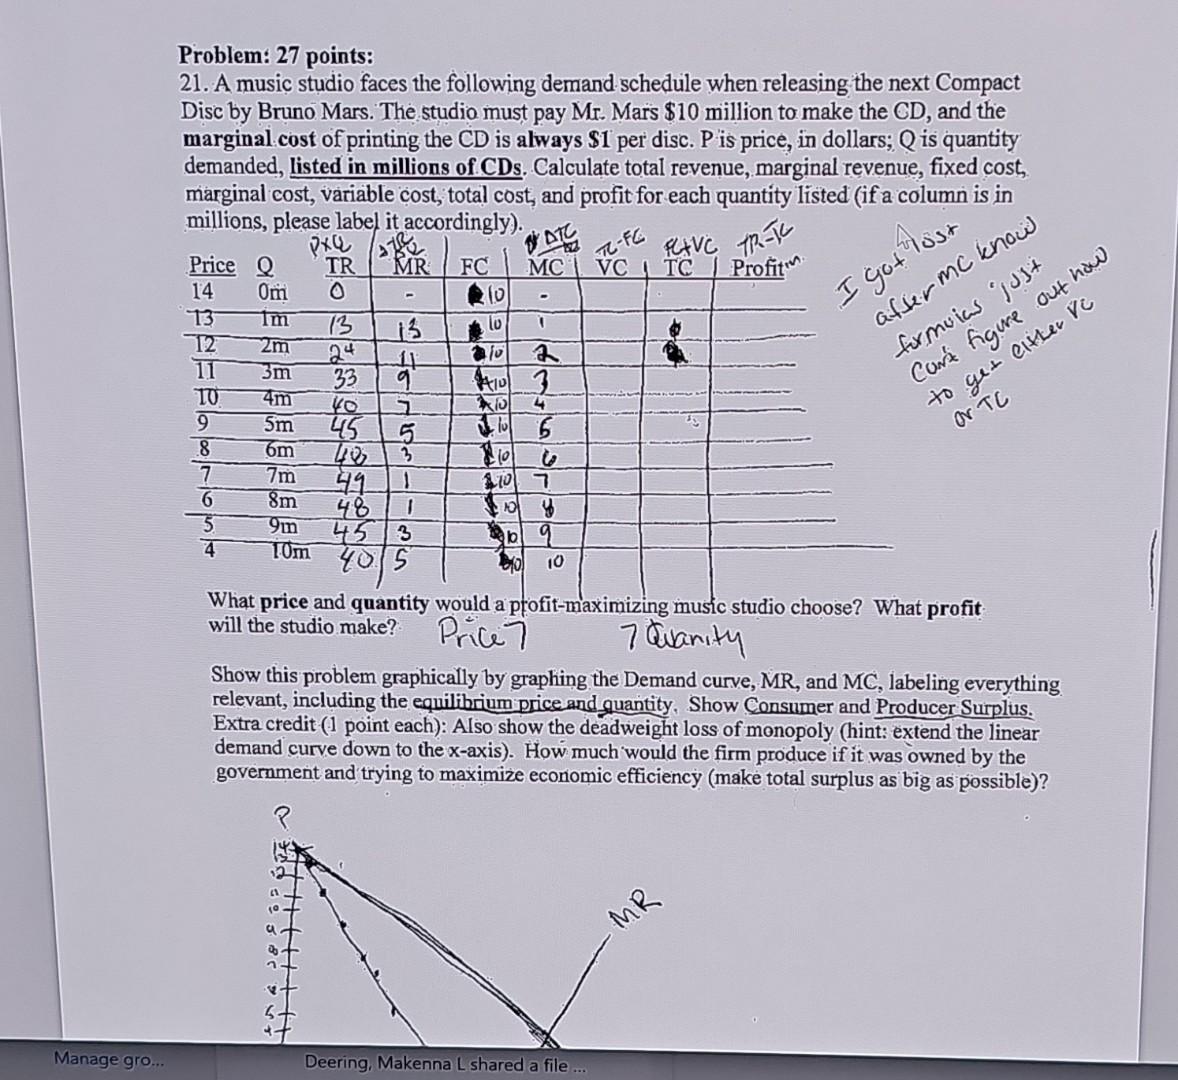 Problem: 27 points:
21. A music studio faces the following demand schedule when releasing the next Compact
Disc by Bruno Mars. The studio must pay Mr. Mars $10 million to make the CD, and the
marginal cost of printing the CD is always $1 per disc. P is price, in dollars; Q is quantity
demanded, listed in millions of CDs. Calculate total revenue, marginal revenue, fixed cost,
marginal cost, variable cost, total cost, and profit for each quantity listed (if a column is in
millions, please label it accordingly).
PxQ ΔTC TC-FC FC+VC TR-TC
Price Q TR MR FC MC VC TC Profit m
14 0m 0 - 10 -
13 1m 13 13 10 1
12 2m 24 11 10 2
11 3m 33 9 10 3
10 4m 40 7 10 4
9 5m 45 5 10 5
8 6m 48 3 10 6
7 7m 49 1 10 7
6 8m 48 1 10 8
5 9m 45 3 10 9
4 10m 40 5 10 10
I got lost
after MC know
formulas just
can't figure out how
to get either VC
or TC
What price and quantity would a profit-maximizing music studio choose? What profit
will the studio make? Price 7 7 Quanity
Show this problem graphically by graphing the Demand curve, MR, and MC, labeling everything
relevant, including the equilibrium price and quantity. Show Consumer and Producer Surplus.
Extra credit (1 point each): Also show the deadweight loss of monopoly (hint: extend the linear
demand curve down to the x-axis). How much would the firm produce if it was owned by the
government and trying to maximize economic efficiency (make total surplus as big as possible)?
P
14
13
12
11
10
9
8
7
6
5
4
MR
Manage gro... Deering, Makenna L shared a file ...